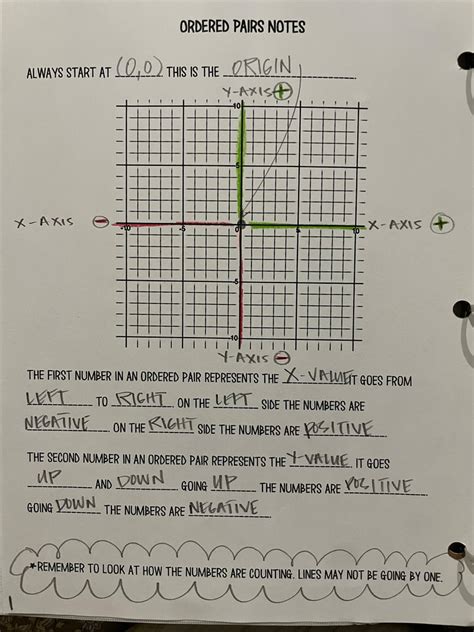 ORDERED PAIRS NOTES
ALWAYS START AT (0,0) THIS IS THE ORIGIN
Y-AXIS +
10
5
X-AXIS - -10 -5 0 5 10 X-AXIS +
-5
-10
Y-AXIS -
THE FIRST NUMBER IN AN ORDERED PAIR REPRESENTS THE X-VALUE. IT GOES FROM
LEFT TO RIGHT. ON THE LEFT SIDE THE NUMBERS ARE
NEGATIVE. ON THE RIGHT SIDE THE NUMBERS ARE POSITIVE.
THE SECOND NUMBER IN AN ORDERED PAIR REPRESENTS THE Y-VALUE. IT GOES
UP AND DOWN. GOING UP THE NUMBERS ARE POSITIVE
GOING DOWN THE NUMBERS ARE NEGATIVE.
*REMEMBER TO LOOK AT HOW THE NUMBERS ARE COUNTING. LINES MAY NOT BE GOING BY ONE.
1